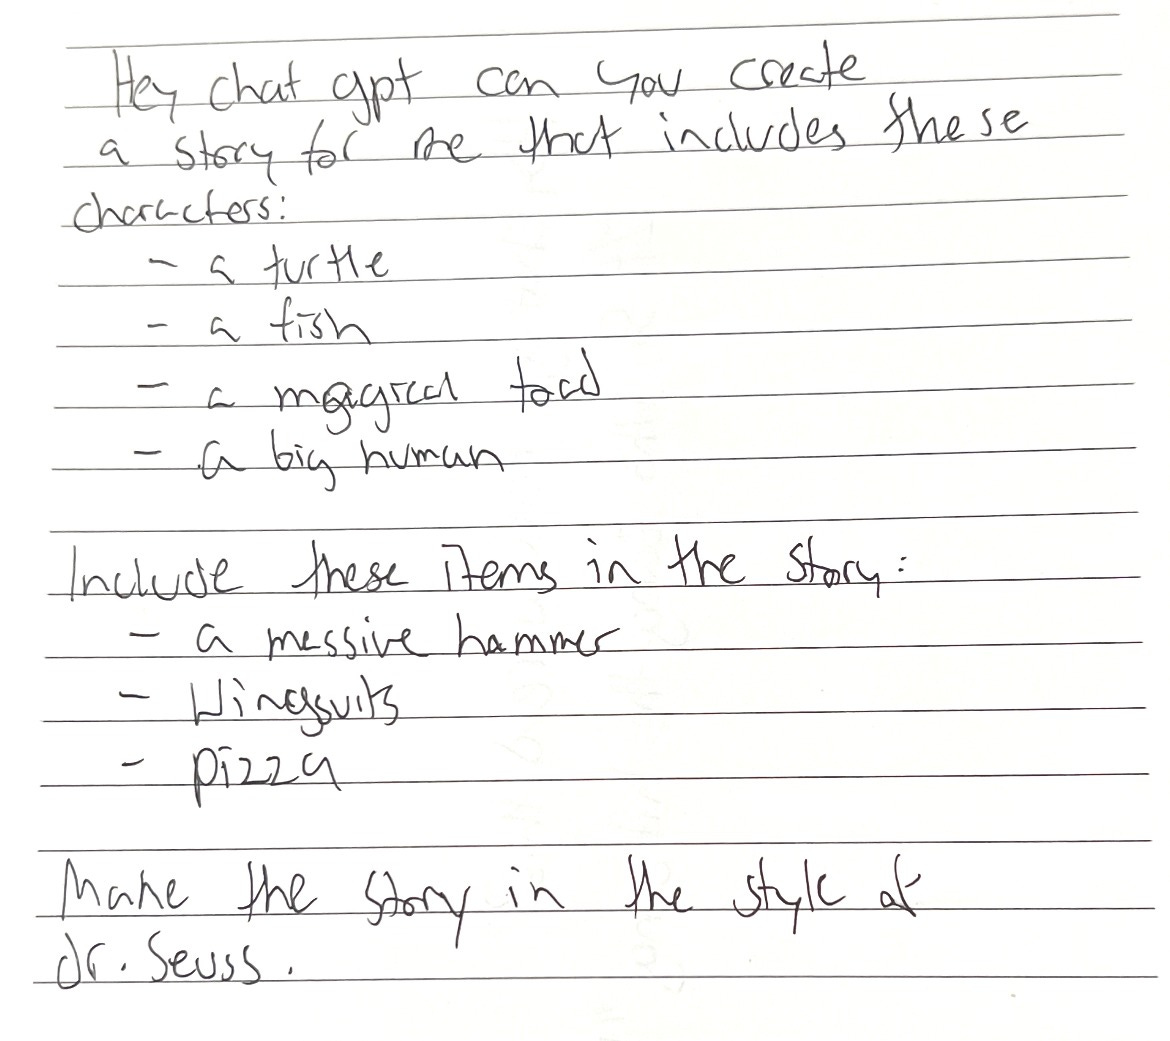 Hey chat gpt can you create
a story for me that includes these
characters:
- a turtle
- a fish
- a magical toad
- a big human
Include these items in the story:
- a massive hammer
- Wingsuits
- pizza
Make the story in the style of
dr. Seuss.